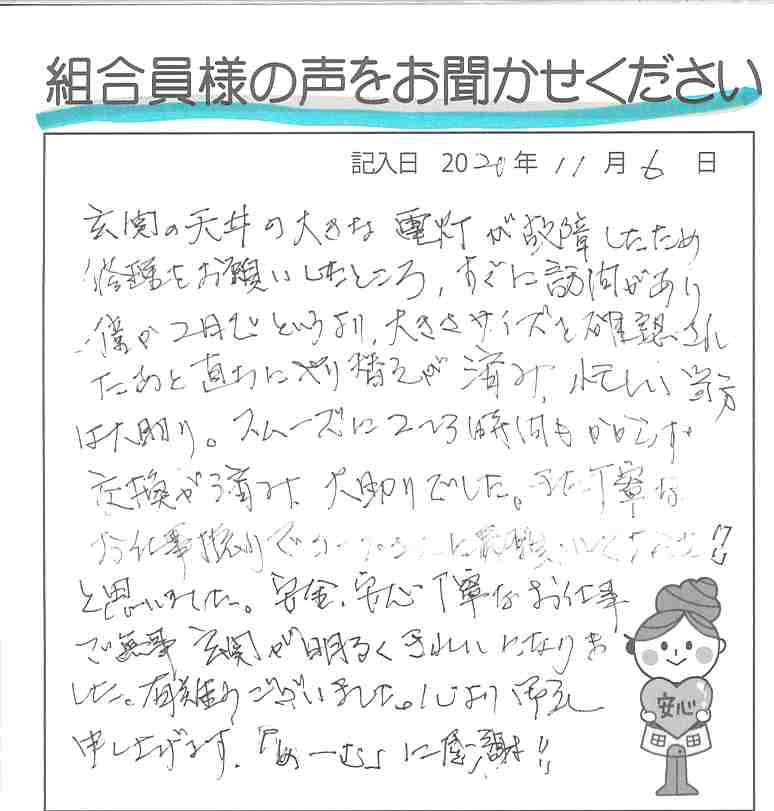 組合員様の声をお聞かせください
記入日 2020年 11月 6日
玄関の天井の大きな電灯が故障したため
修理をお願いしたところ、すぐに訪問があり
僅か2日でというより、大きさサイズを確認され
たあと直ちに取り替えが済み、忙しい当方
は大助り。スムーズに2〜3時間もかからず
交換が済み、大助りでした。また丁寧な
お仕事振りで にお願いしてよかった!!
と思いました。安全、安心 丁寧なお仕事
で無事 玄関が明るくきれいになりま
した。有難うございました。心より御礼
申し上げます。「めーむ」に感謝!!
安心